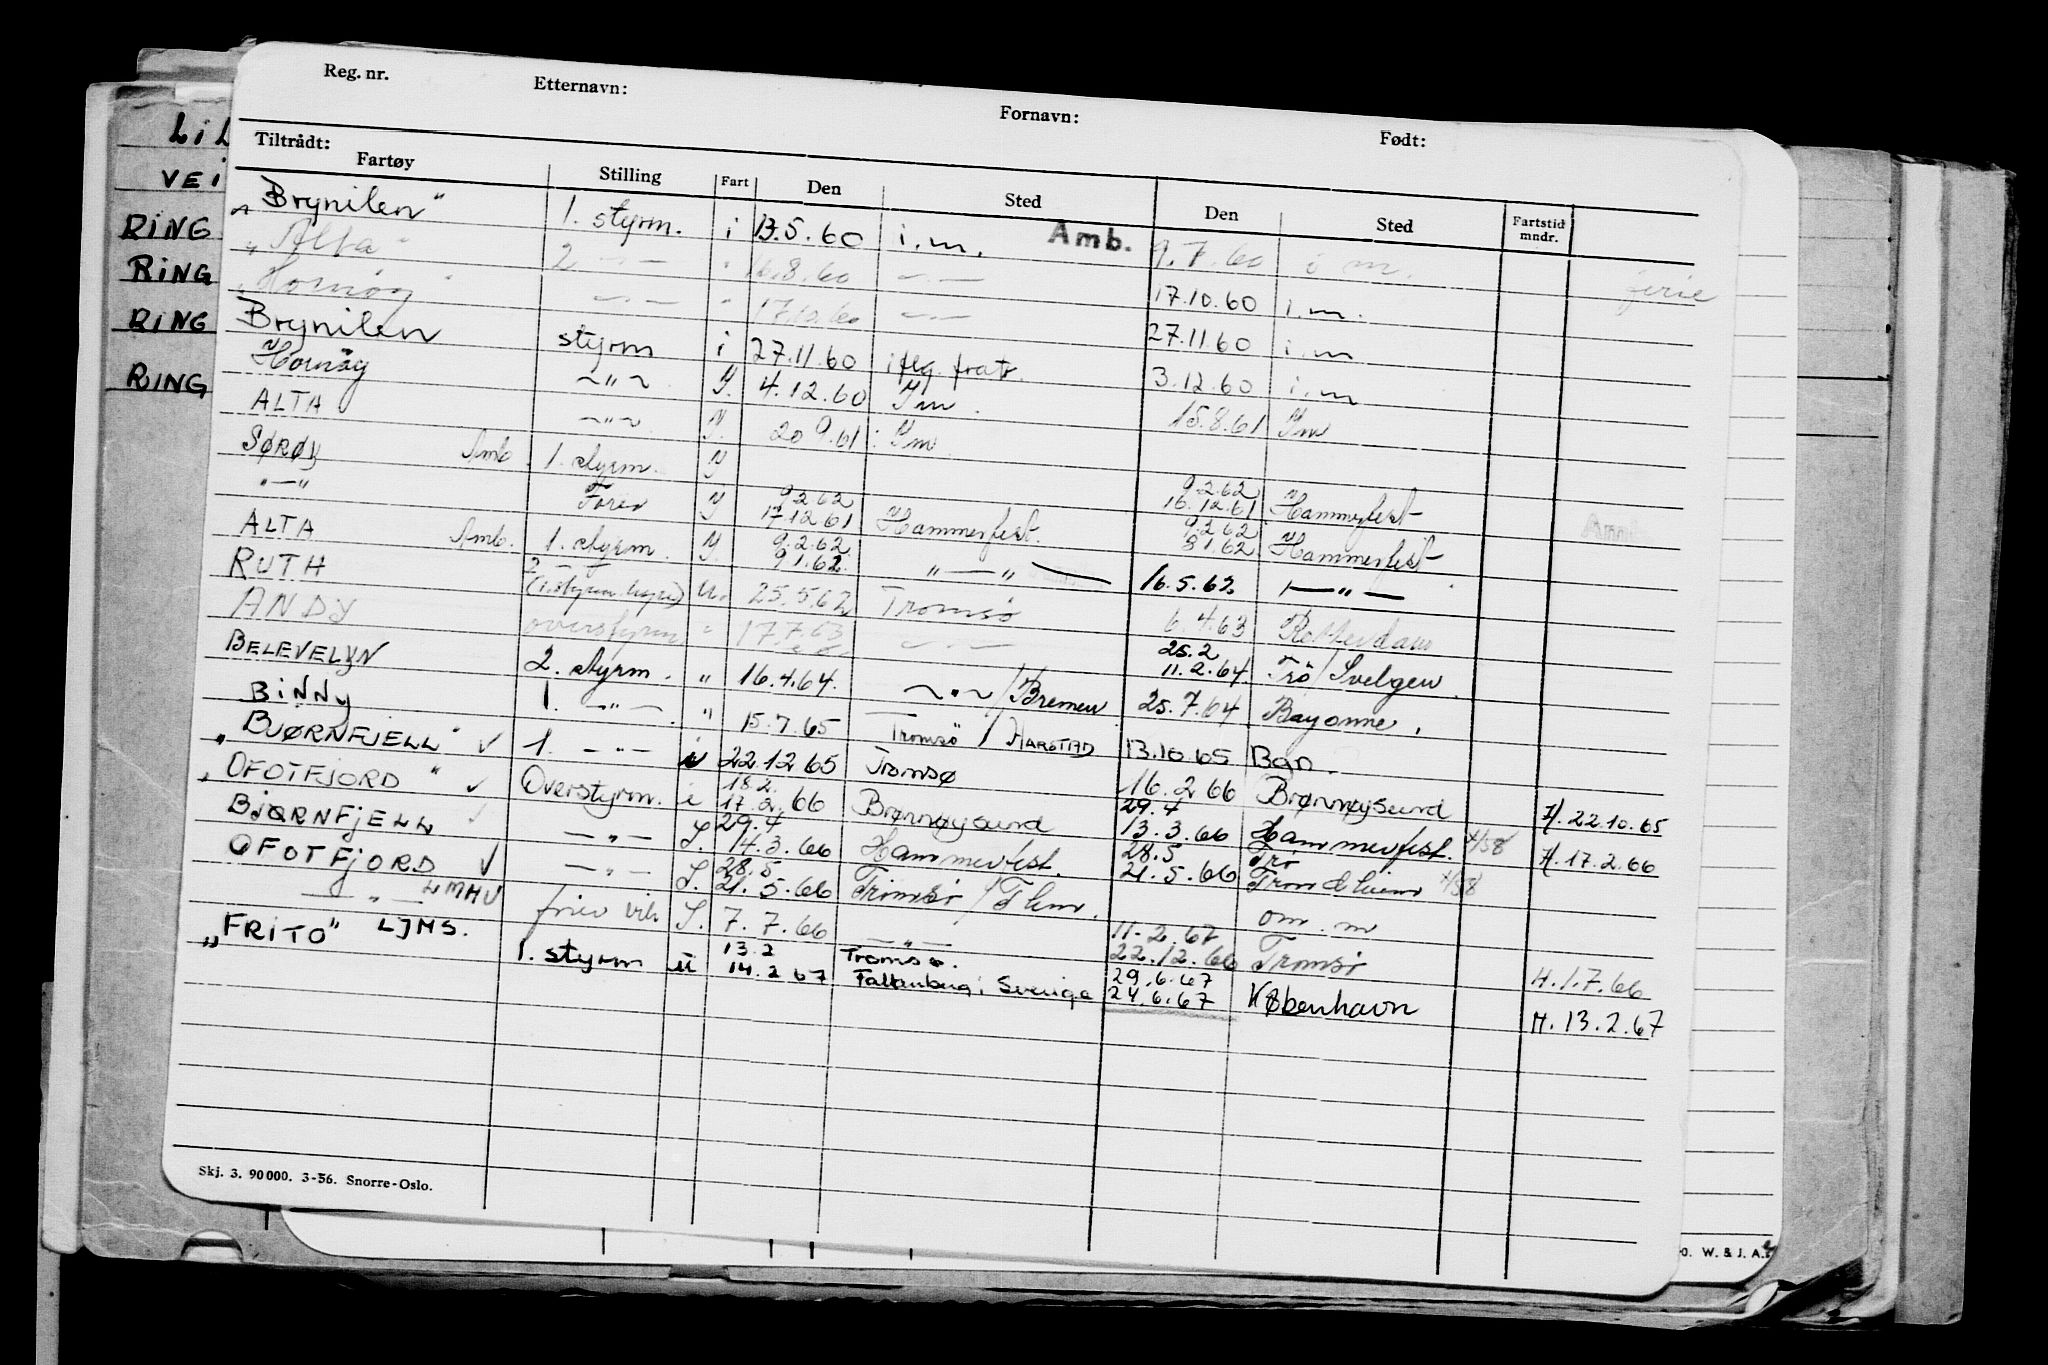 Reg. nr. Etternavn: Fornavn: Født:
Tiltrådt:
Fartøy Stilling Fart Den Sted Den Sted Fartstid mndr.
LiL
VEi
RING
RING
RING
RING
„Brynilen" 1. styrm. i 13.5.60 i.m. Amb. 9.7.60 i m. ferie
„Alta" 2 —"— " 16.8.60 —"— 17.10.60 i.m.
„Hornøy" —"— " 17.10.60 —"— 27.11.60 i.m
Brynilen styrm i 27.11.60 i 3.12.60 i.m
Hornöy ~"~ Y. 4.12.60 Ym. 15.8.61 Ym
ALTA ~"~ Y. 20 9.61 Ym
SØRØY Amb 1. styrm. Y 9.2.62
"—" Y 9.2.62 16.12.61 Hammerfest
17.12.61 Hammerfest. 9.2.62
ALTA Amb. 1. styrm. Y. 9.2.62 8.1.62 Hammerfest
2 —"— 9.1.62. "—" 16.5.62 —"—
RUTH u. 25.5.62 Tromsø 6.4.63 Rotterdam
ANDY overstyrm " 17.7.63 —"— 25.2
11.2.64. Trö/Svelgen.
BELEVELYN 2. styrm. " 16.4.64. ~"~/Bremen 25.7.64 Bayonne.
BINNY 1. —"—. " 15.7.65 Tromsö / HARSTAD 13.10.65 Bgn.
„BJØRNFJELL" ✓ 1. —"— i 22.12 65 Tromsø 16.2 66 Brønnøysund H. 22.10.65
„OFOTFJORD" ✓ Overstyrm. i 18.2.
17.2.66 Brønnøysund 29.4
13.3.66 Hammerfest. H. 17.2.66
BJØRNFJELL ✓ —"— S. 29.4
14.3.66 Hammerfest. 28.5
21.5.66 Trö
Trondheim
OFOTFJORD ✓ —"— S. 28.5
21.5.66 Tromsö/Thm. om. m
—"— LMHV S. 7.7.66 —"— 11-2.67
22.12.66 Tromsö H. 1.7.66
„FRITO" LJMS. 1. styrm u 13.2
14.2 67 Tromsø.
Falkenberg i Sverige 29.6.67
24.6.67 København H. 13.2.67
Skj. 3. 90 000. 3-56. Snorre-Oslo.
o. W. & J. A.